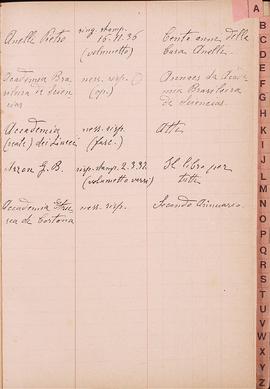 Anelli Pietro
ring. stamp.
16.11.36
(volumetto)
Cento anni della
Casa Anelli
Academia Bra
sileira de Scien
cias
ness. risp.
(op.)
Annaes da Acade
mia Brasileira
de Sciencias.
Accademia
(reale) dei Lincei
ness. risp.
(fasc.)
Atti
G. B.
risp. stamp. 2.3.37.
(volumetto versi)
Il libro per
tutti
Accademia Etru
sca di Cortona
ness. risp.
Secondo Annuario.
A
B
C
D
E
F
G
H
I
J
K
L
M
N
O
P
Q
R
S
T
U
V
W
X
Y
Z